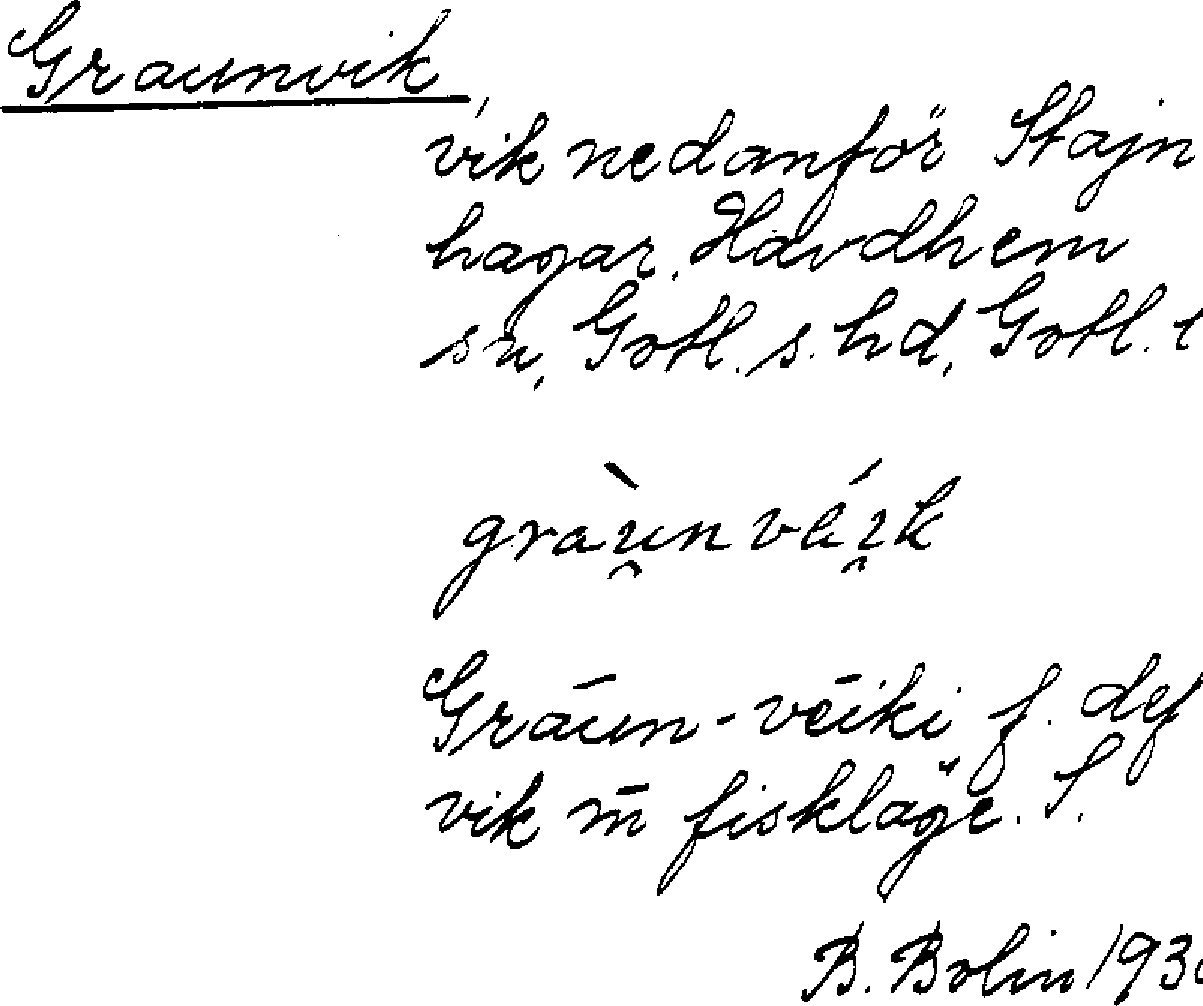 Graunvik
vik nedanför Stajn
hagar, Havdhem
sn, Gotl. s. hd, Gotl.
gràu̯nvéi̯k
Gráun-vēiki f. def
vik m̄ fiskläge. S.
B. Bolin 193